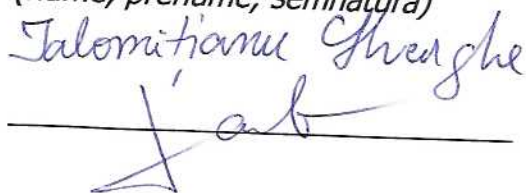 (nume, prenume, semnătura)
Ialomițianu Gheorghe